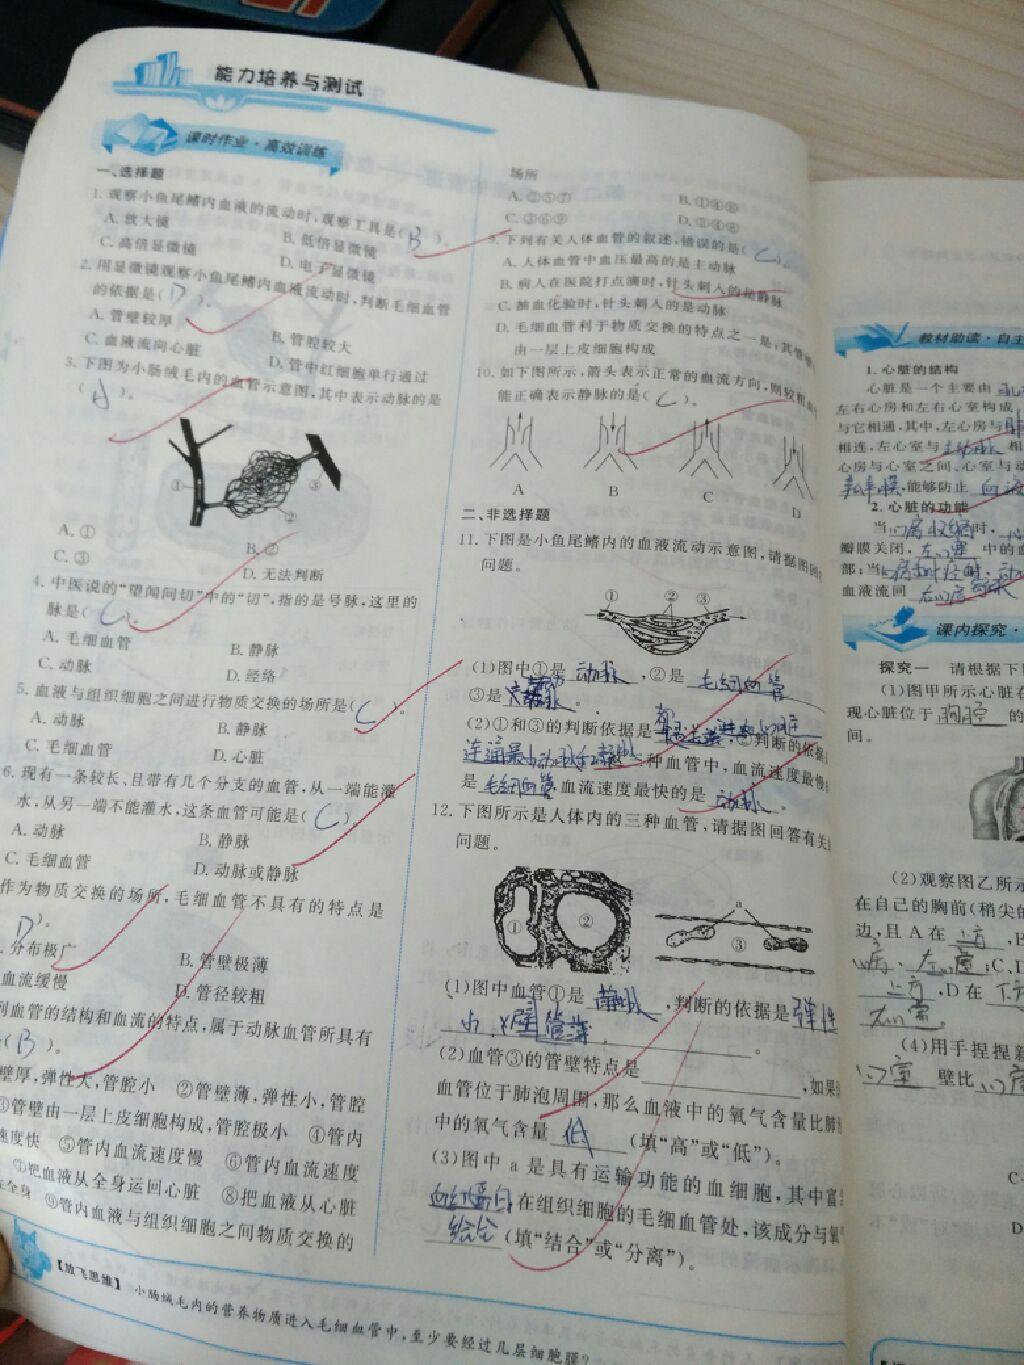 能力培养与测试
课时作业·高效训练
一、选择题
1. 观察小鱼尾鳍内血液的流动时,观察工具是( B )。
A. 放大镜 B. 低倍显微镜
C. 高倍显微镜 D. 电子显微镜
2. 用显微镜观察小鱼尾鳍内血液流动时,判断毛细血管
的依据是( D )。
A. 管壁较厚 B. 管腔较大
C. 血液流向心脏 D. 管中红细胞单行通过
3. 下图为小肠绒毛内的血管示意图,其中表示动脉的是
( A )。
① ② ③
A. ① B. ②
C. ③ D. 无法判断
4. 中医说的“望闻问切”中的“切”,指的是号脉,这里的
脉是( C )。
A. 毛细血管 B. 静脉
C. 动脉 D. 经络
5. 血液与组织细胞之间进行物质交换的场所是( C )。
A. 动脉 B. 静脉
C. 毛细血管 D. 心脏
6. 现有一条较长、且带有几个分支的血管,从一端能灌
水,从另一端不能灌水,这条血管可能是( C )
A. 动脉 B. 静脉
C. 毛细血管 D. 动脉或静脉
作为物质交换的场所,毛细血管不具有的特点是
D )。
分布极广 B. 管壁极薄
血流缓慢 D. 管径较粗
列血管的结构和血流的特点,属于动脉血管所具有
( B )。
壁厚,弹性大,管腔小 ②管壁薄,弹性小,管腔
③管壁由一层上皮细胞构成,管腔极小 ④管内
速度快 ⑤管内血流速度慢 ⑥管内血流速度
⑦把血液从全身运回心脏 ⑧把血液从心脏
全身 ⑨管内血液与组织细胞之间物质交换的
【放飞思维】 小肠绒毛内的营养物质进入毛细血管中,至少要经过几层细胞膜?
场所
A. ②⑤⑦ B. ①④⑧
C. ③⑥⑨ D. ②④⑧
9. 下列有关人体血管的叙述,错误的是( C )。
A. 人体血管中血压最高的是主动脉
B. 病人在医院打点滴时,针头刺入的是静脉
C. 抽血化验时,针头刺入的是动脉
D. 毛细血管利于物质交换的特点之一是:其管壁
由一层上皮细胞构成
10. 如下图所示,箭头表示正常的血流方向,则
能正确表示静脉的是( C )。
A B C D
二、非选择题
11. 下图是小鱼尾鳍内的血液流动示意图,请据图回答
问题。
① ② ③
(1)图中①是 动脉 ,②是 毛细血管
③是 脉 。
(2)①和③的判断依据是 ②判断的依据
连通最小动脉和静脉 种血管中,血流速度最慢
是 毛细血管 血流速度最快的是 动脉 。
12. 下图所示是人体内的三种血管,请据图回答有关
问题。
① ② a ③
(1)图中血管①是 静脉 ,判断的依据是 弹性
小,壁管薄 。
(2)血管③的管壁特点是 ,如果
血管位于肺泡周围,那么血液中的氧气含量比肺
中的氧气含量 低 (填“高”或“低”)。
(3)图中 a 是具有运输功能的血细胞,其中富
血红蛋白 在组织细胞的毛细血管处,该成分与氧
结合 (填“结合”或“分离”)。
教材助读·自主
1. 心脏的结构
心脏是一个主要由
左右心房和左右心室构成
与它相通,其中,左心房与
相连,左心室与 主动脉 相
心房与心室之间、心室与动
,能够防止 血液
2. 心脏的功能
当 心房收缩 时,
瓣膜关闭, 左心室 中的血
部;当
血液流回
课内探究·
探究一 请根据下图
(1)图甲所示心脏在
现心脏位于 胸腔 的
间。
(2)观察图乙所示
在自己的胸前(稍尖的
边,且 A 在 上方 ,B
心房 、 左心室 ;C、D
上方 ,D 在 下方
右心室 。
(4)用手捏捏
心室 壁比 心房